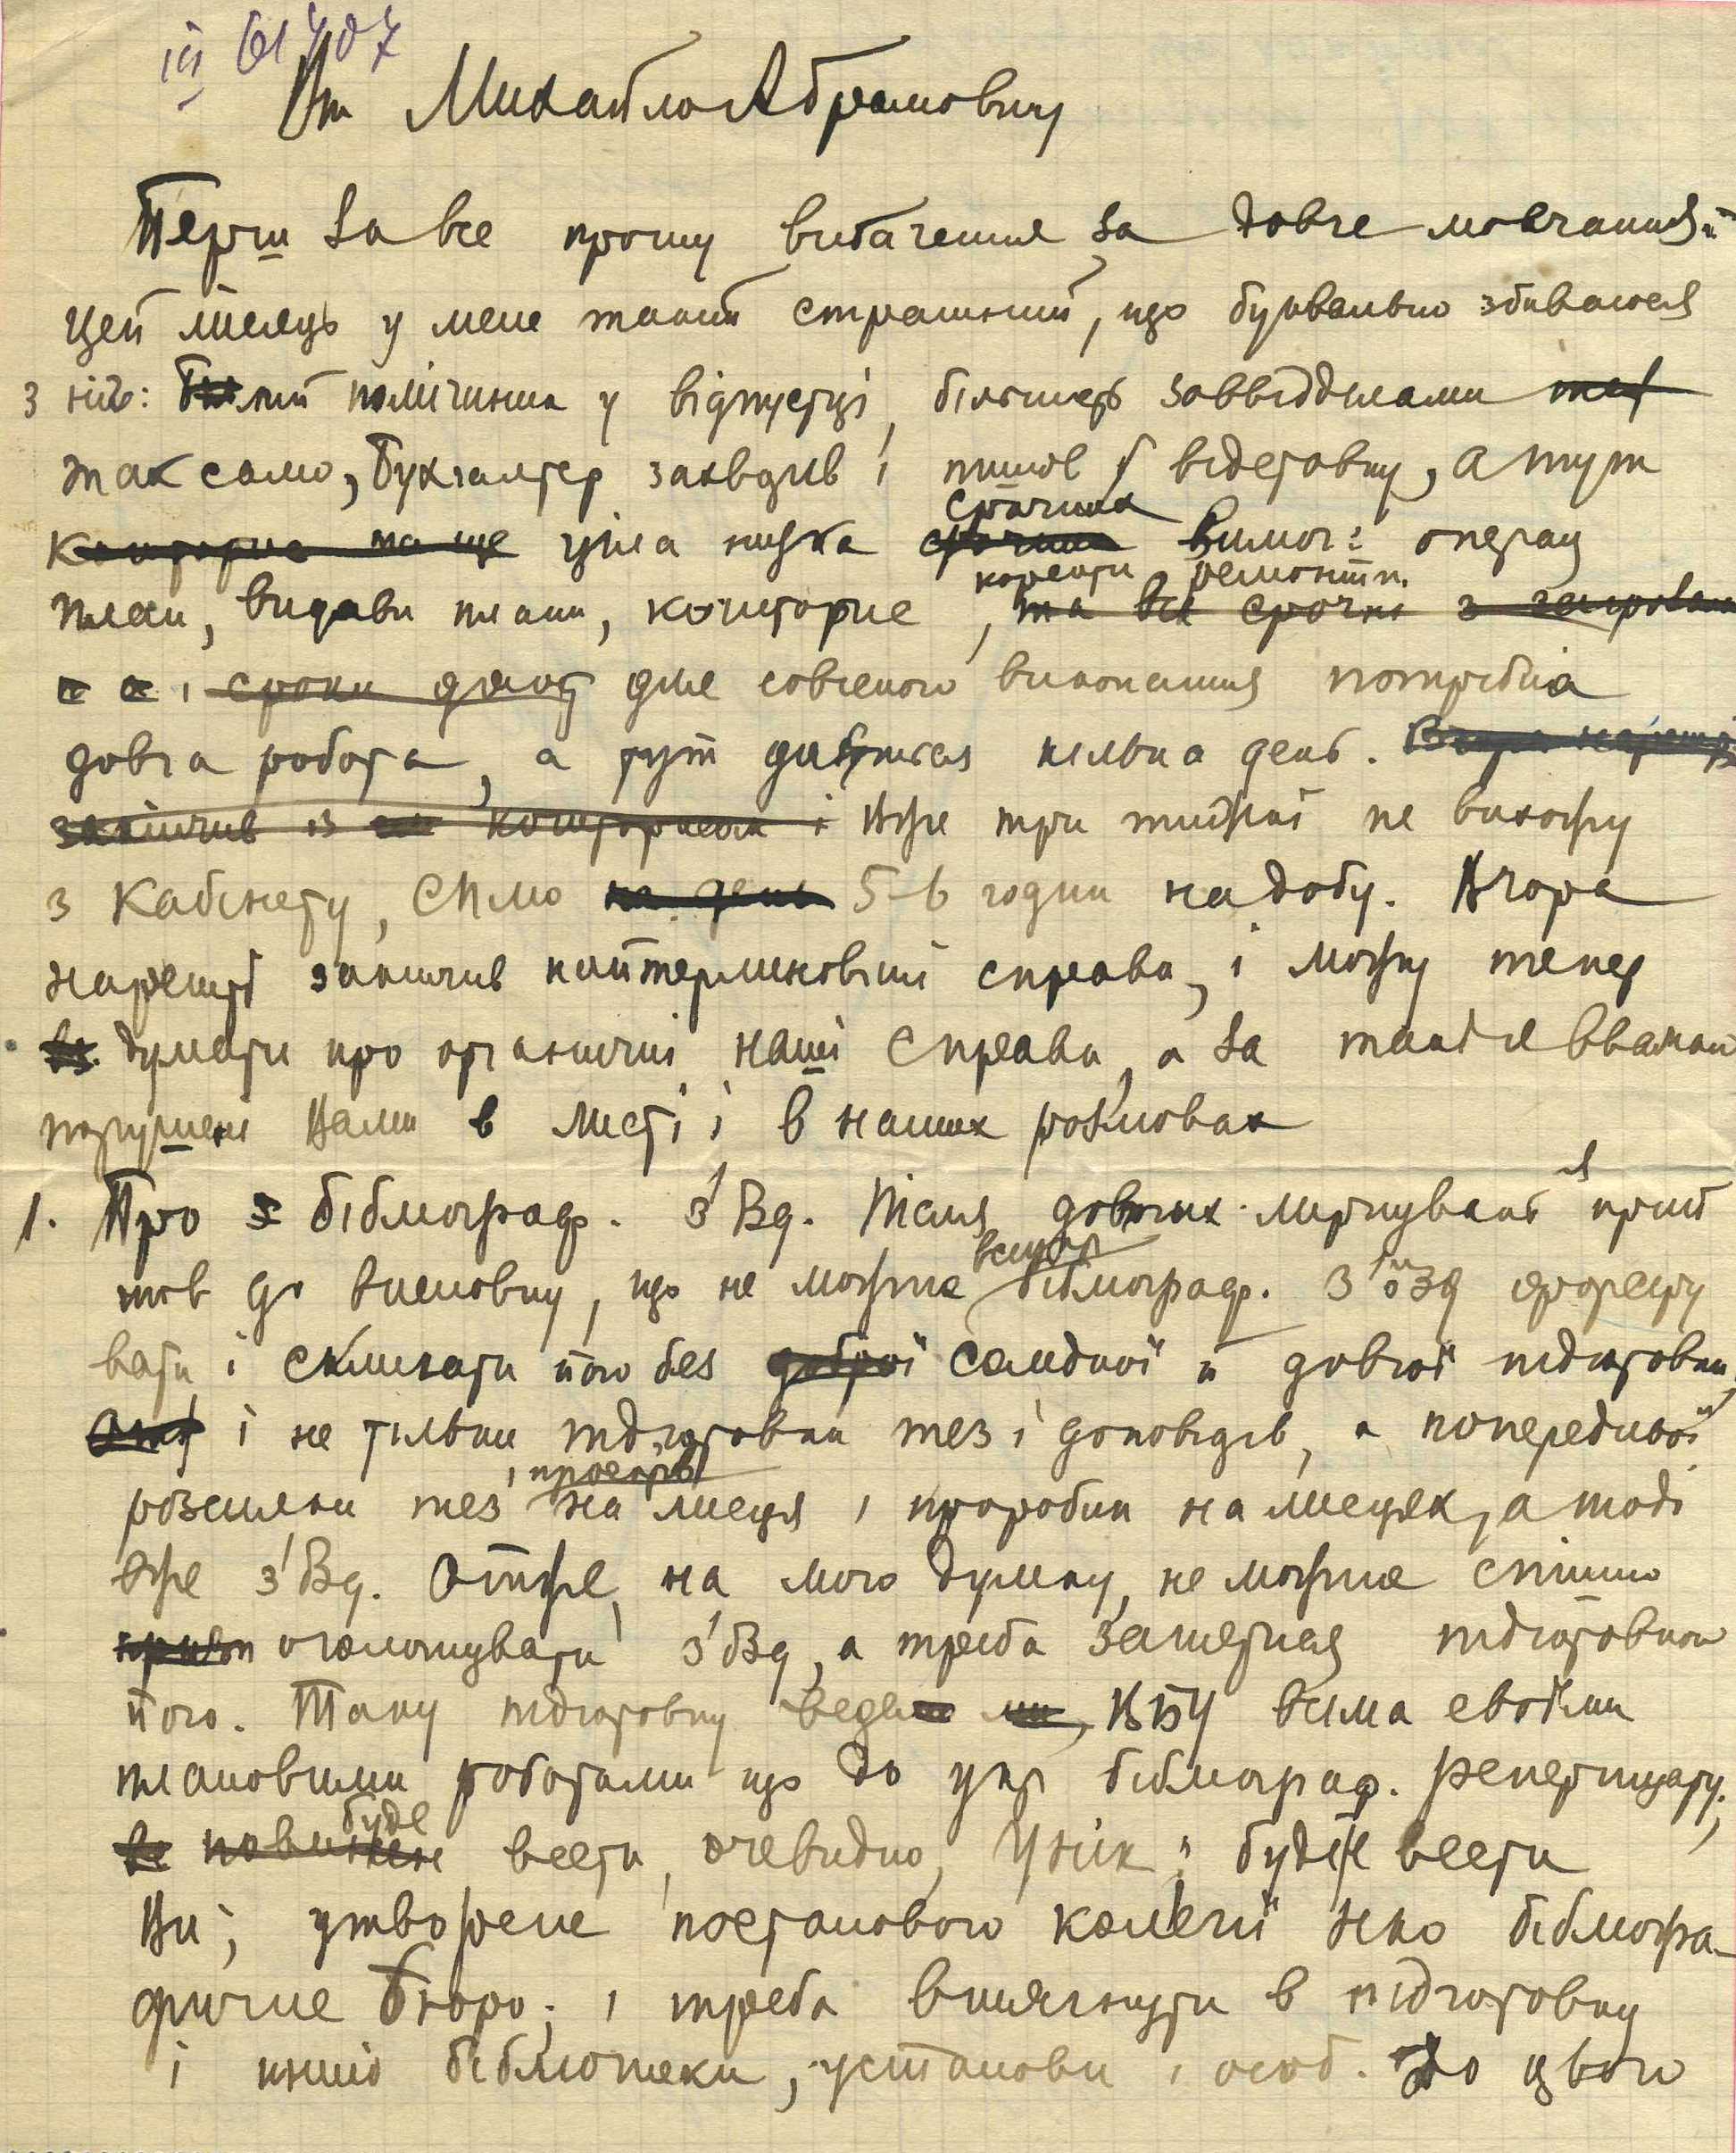 ііі 61707
Вш Михайло Абрамович
Перш за все прошу вибачення за довге мовчання:
цей місяць у мене такий страшний, що буквально збиваюся
з ніг: мій помічник у відпустці, більшість заввідділами
так само, бухгалтер захворів і пішов у відставку, а тут
ціла низка срочних вимог: операц
плян, видавн плян, кошторис, кореспр ремонтн.
для совісного виконання потрібна
довга робота, а тут дається кілька день.
Вже три тижні не виходжу
з Кабінету, сплю 5-6 годин на добу. Вчора
нарешті закінчив найтерміновіші справи, і можу тепер
думати про органічні наші справи, а за такі я вважаю
порушені Вами в листі і в наших розмовах
1. Про бібліограф. з'їзд. Після довгих міркувань я прий
шов до висновку, що не можна всеукр бібліограф. З'їзд форсу
вати і скликати його без солідної й довгої підготовки,
і не тільки підготовки тез і доповідів, а попередньої
розсилки тез і проектів на місця і проробки на місцях, а тоді
вже з'їзд. Отже, на мою думку, не можна спішно
оголошувати з'їзд, а треба зайнятися підготовкою
його. Таку підготовку веде ВБУ всіма своїми
плановими роботами що до укр бібліограф. репертуару;
буде вести, очевидно, УНІК; буде ж вести
Ви, утворене постановою колегії НКО бібліогра-
фичне бюро; і треба втягнути в підготовку
і инші бібліотеки, установи і особ. До цього